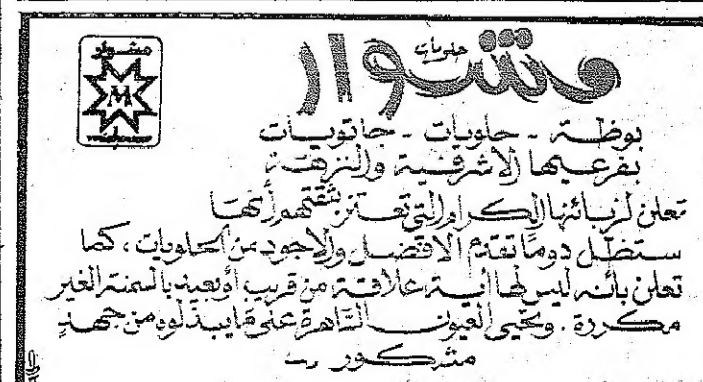 مشوار
M
حلويات
مشوار
بوظة - حلويات - جاتويات
بفرعيها الاشرفية والنزهة
تعلن لزبائنها الكرام التي تعتز بثقتهم أنها
ستظل دوماً تقدم الافضل والاجود من الحلويات، كما
تعلن بأنه ليس لها أية علاقة من قريب أو بعيد بالسمنة الغير
مكررة. وتحيي العيون الساهرة على ما يبذلوه من جهد
مشكور